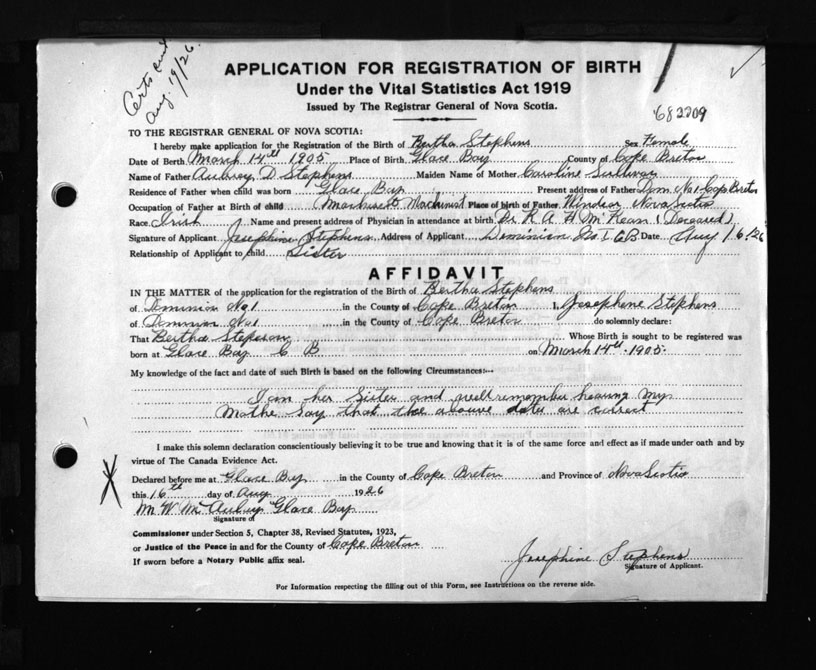 Certs cont
Aug. 19/26.
APPLICATION FOR REGISTRATION OF BIRTH
Under the Vital Statistics Act 1919
Issued by The Registrar General of Nova Scotia.
682209
TO THE REGISTRAR GENERAL OF NOVA SCOTIA:
I hereby make application for the Registration of the Birth of Bertha Stephens Sex Female
Date of Birth March 14th 1905 Place of Birth Glace Bay County of Cape Breton
Name of Father Aubrey D Stephens Maiden Name of Mother Caroline Sullivan
Residence of Father when child was born Glace Bay Present address of Father Dom. No 1 Cap Breton
Occupation of Father at Birth of child Machinist Place of birth of Father Windsor Nova Scotia
Race Irish Name and present address of Physician in attendance at birth Dr. R A H McKean (Deceased)
Signature of Applicant Josephine Stephens Address of Applicant Dominion No 1 CB Date 16/26
Relationship of Applicant to child Sister
AFFIDAVIT
IN THE MATTER of the application for the registration of the Birth of Bertha Stephens
of Dominion No 1 in the County of Cape Breton I, Josephene Stephens
of Dominion No 1 in the County of Cape Breton do solemnly declare:
That Bertha Stepeson Whose Birth is sought to be registered was
born at Glace Bay C B on March 14th. 1905.
My knowledge of the fact and date of such Birth is based on the following Circumstances:—
I am her Sister and well remember hearing my
Mothe say that the above dates are currect
I make this solemn declaration conscientiously believing it to be true and knowing that it is of the same force and effect as if made under oath and by
virtue of The Canada Evidence Act.
Declared before me at Glace Bay in the County of Cape Breton and Province of Nova Scotia
this 16th day of Aug 1926
Glace Bay
Signature of
Commissioner under Section 5, Chapter 38, Revised Statutes, 1923,
or Justice of the Peace in and for the County of Cape Breton
If sworn before a Notary Public affix seal.
Josephine Stephens
Signature of Applicant.
For Information respecting the filling out of this Form, see Instructions on the reverse side.